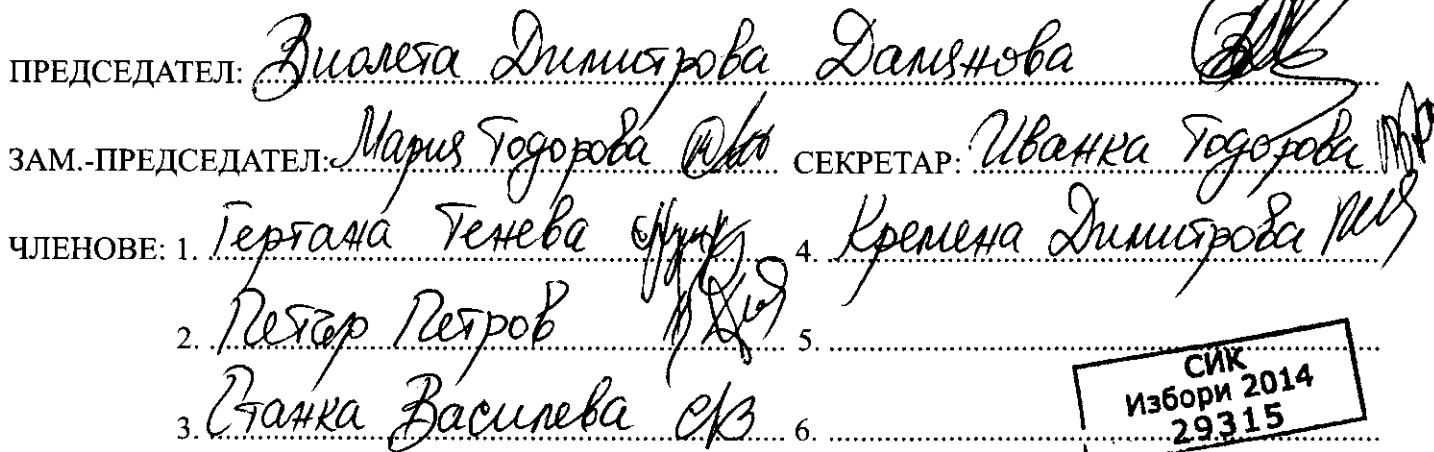 ПРЕДСЕДАТЕЛ: Виолета Димитрова Дамянова
ЗАМ.-ПРЕДСЕДАТЕЛ: Мария Тодорова СЕКРЕТАР: Иванка Тодорова
ЧЛЕНОВЕ: 1. Гергана Тенева 4. Кремена Димитрова
2. Петър Петров 5.
3. Станка Василева 6.
СИК
Избори 2014
29315